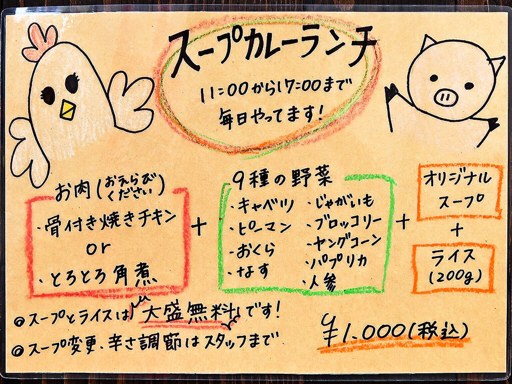 スープカレーランチ
11:00から17:00まで
毎日やってます!
お肉(おえらびください)
・骨付き焼きチキン
or
・とろとろ角煮
+
9種の野菜
・キャベツ
・ピーマン
・おくら
・なす
・じゃがいも
・ブロッコリー
・ヤングコーン
・パプリカ
・人参
+
オリジナル
スープ
+
ライス
(200g)
◎スープとライスは大盛無料です!
◎スープ変更、辛さ調節はスタッフまで
¥1.000(税込)